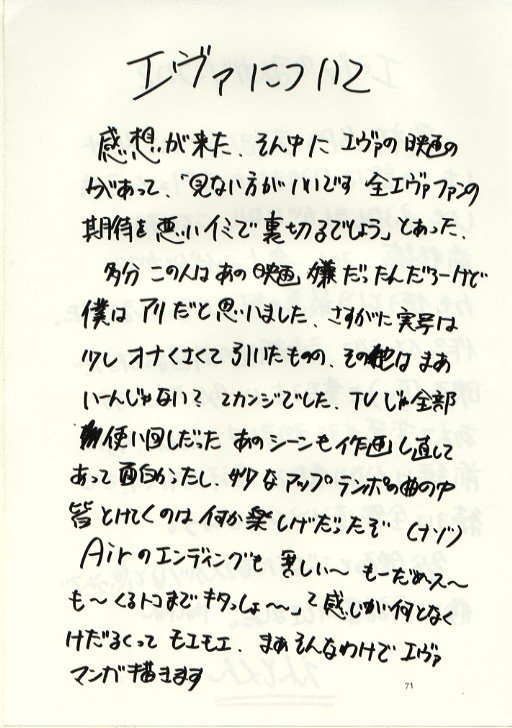 エヴァについて
感想が来た、そん中に エヴァの映画の
があって、「見ない方がいいです 全エヴァファンの
期待を悪いイミで裏切るでしょう」とあった、
多分 この人はあの映画 嫌だったんだろーけど
僕は アリ だと思いました、さすがに実写は
少し オナくさくて 引いたものの、その他は まあ
いーんじゃない? てカンジでした、TVじゃ全部
使い回しだった あのシーンも作画し直して
あって面白かったし、妙なアップテンポの曲の中
皆とけてくのは何か楽しげだったぞ (ナゾ)
Airのエンディングも 美しい〜 もーだめス〜
も〜くるトコまでキタっしょ〜〜」て感じが何となく
けだるくって モエモエ、まあそんなわけで エヴァ
マンガ描きます
71